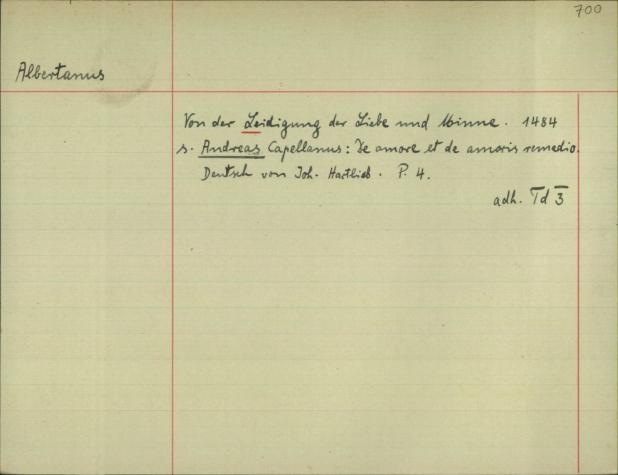 700
Albertanus
Von der Leidigung der Liebe und Minne. 1484
s. Andreas Capellanus: De amore et de amoris remedio.
Deutsch von Joh. Hartlieb. P. 4.
adh. Td 3